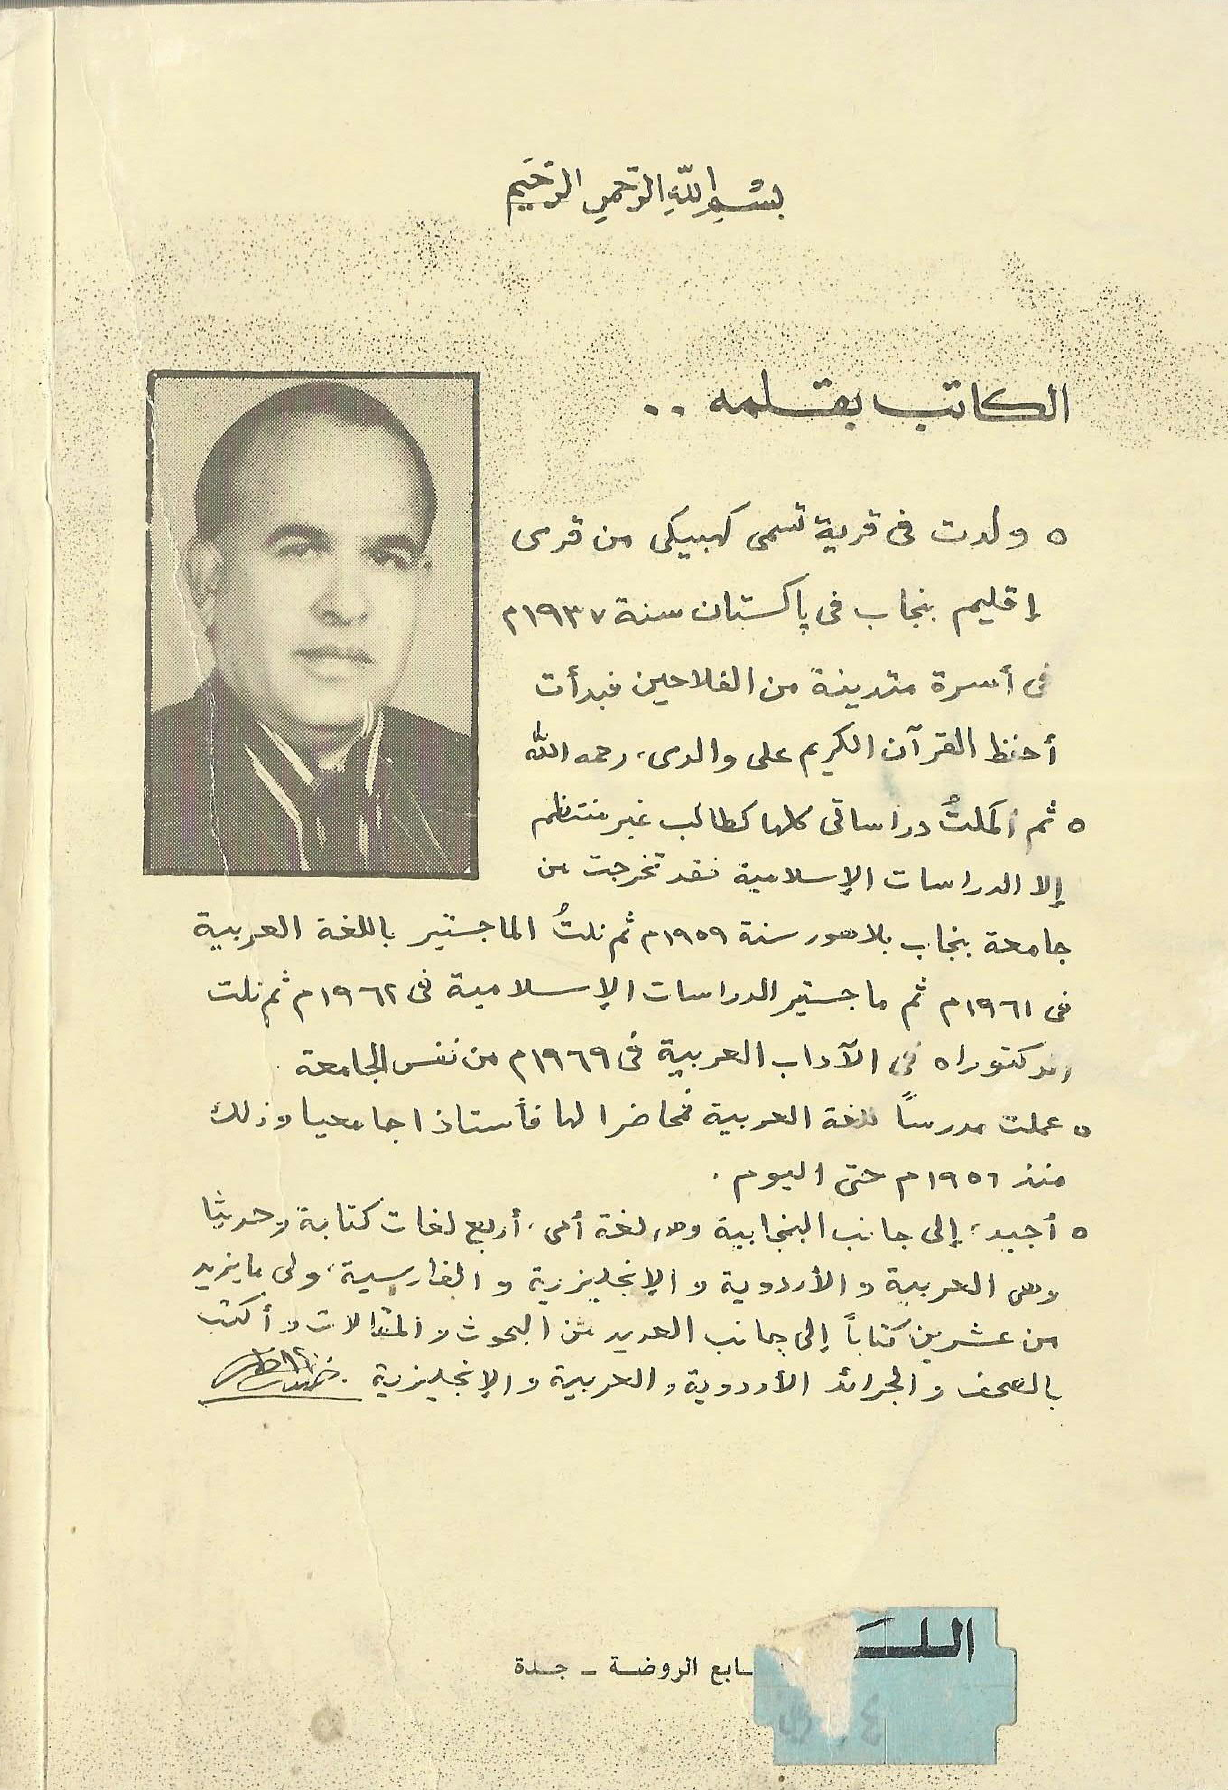 بِسْمِ اللّٰهِ الرَّحمنِ الرَّحَيمِ
الكاتب بقلمه ..
٥ ولدت فى قرية تسمى كهبيكى من قرى
إقليم بنجاب فى پاكستان سنة ١٩٣٧م
فى أسرة متدينة من الفلاحين فبدأت
أحفظ القرآن الكريم على والدى، رحمه الله
٥ ثم أكملتُ دراساتى كلها كطالب غير منتظم
إلا الدراسات الإسلامية فقد تخرجت من
جامعة بنجاب بلاهور سنة ١٩٥٩م ثم نلتُ الماجستير باللغة العربية
فى ١٩٦١م ثم ماجستير الدراسات الإسلامية فى ١٩٦٢م ثم نلت
الدكتوراه فى الآداب العربية فى ١٩٦٩م من نفس الجامعة .
٥ عملت مدرساً للغة العربية فمحاضرا لها فأستاذا جامعيا وذلك
منذ ١٩٥٦م حتى اليوم .
٥ أجيد، إلى جانب البنجابية وهى لغة أمى، أربع لغات كتابة وحديثا
وهى العربية و الأردوية و الإنجليزية و الفارسية، ولى ما يزيد
من عشرين كتاباً إلى جانب العديد من البحوث و المقالات و أكتب
بالصحف و الجرائد الأردوية و العربية و الإنجليزية .
ـابع الروضة – جدة